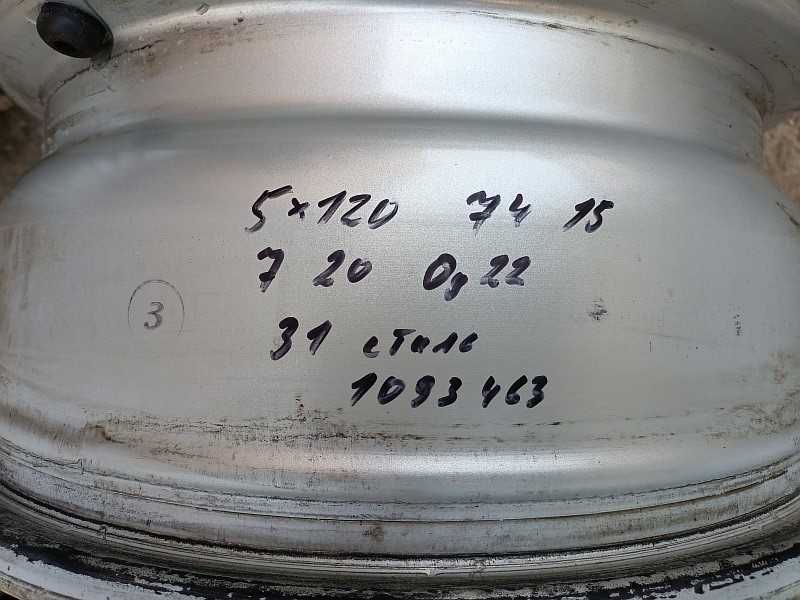 5x120 74 15
7 20 Оу22
3
31 стиль
1093463